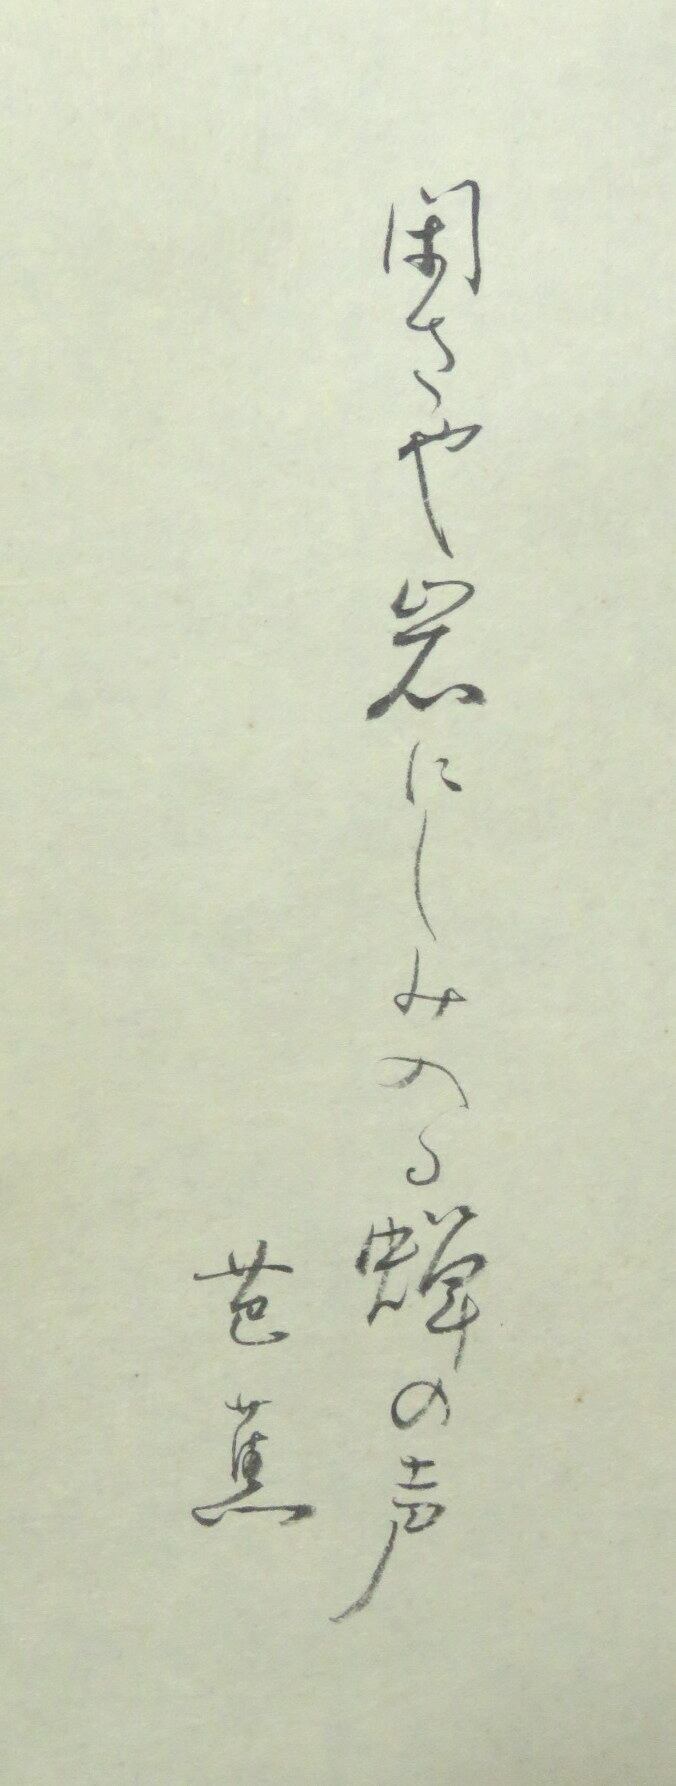 閑さや岩にしみ入る蝉の声
芭蕉